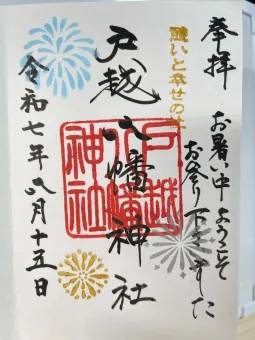 奉拝
お暑い中ようこそ
お参り下さいました
願いと幸せの社
戸越八幡神社
戸越
八幡
神社
令和七年八月十五日